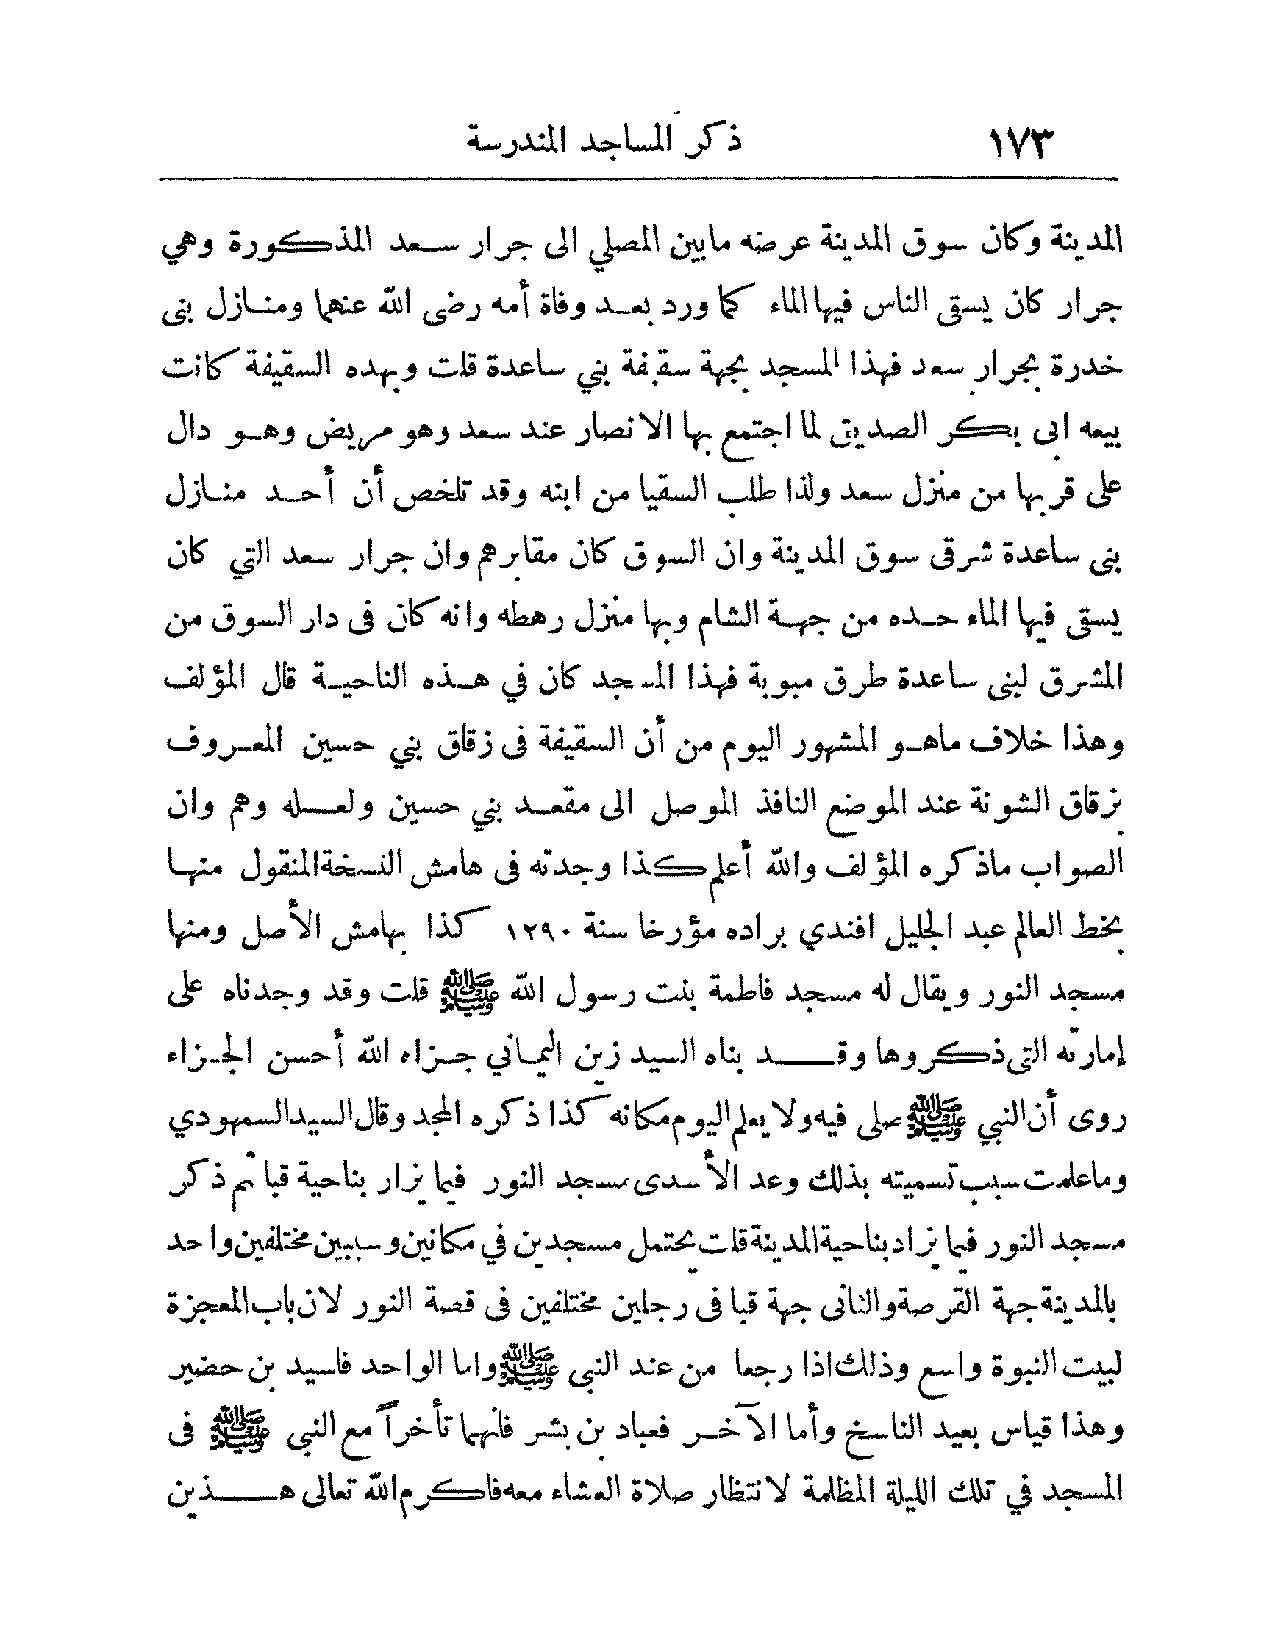 ١٧٣ ذكر المساجد المندرسة
المدينة وكان سوق المدينة عرضه مابين المصلي الى جرار سعد المذكورة وهي
جرار كان يسقى الناس فيها الماء كما ورد بعد وفاة أمه رضى الله عنهما ومنازل بنى
خدرة بجرار سعد فهذا المسجد بجهة سقيفة بني ساعدة قلت وبهذه السقيفة كانت
بيعه ابى بكر الصديق لما اجتمع بها الانصار عند سعد وهو مريض وهو دال
على قربها من منزل سعد ولذا طلب السقيا من ابنه وقد تلخص أن أحد منازل
بنى ساعدة شرقى سوق المدينة وان السوق كان مقابرهم وان جرار سعد التي كان
يسقى فيها الماء حده من جهة الشام وبها منزل رهطه وانه كان فى دار السوق من
المشرق لبنى ساعدة طرق مبوبة فهذا المسجد كان في هذه الناحية قال المؤلف
وهذا خلاف ماهو المشهور اليوم من أن السقيفة فى زقاق بني حسين المعروف
بزقاق الشونة عند الموضع النافذ الموصل الى مقعد بني حسين ولعله وهم وان
الصواب ماذكره المؤلف والله أعلم كذا وجدته فى هامش النسخة المنقول منها
بخط العالم عبد الجليل افندي براده مؤرخا سنة ١٢٩٠ كذا بهامش الأصل ومنها
مسجد النور ويقال له مسجد فاطمة بنت رسول الله ﷺ قلت وقد وجدناه على
إمارته التى ذكروها وقد بناه السيد زين اليمانى جزاه الله أحسن الجزاء
روى أن النبي ﷺ صلى فيه ولا يعلم اليوم مكانه كذا ذكره المجد وقال السيد السمهودي
وما علمت سبب تسميته بذلك وعد الأسدى مسجد النور فيما يزار بناحية قبا ثم ذكر
مسجد النور فيما يزاد بناحية المدينة قلت يحتمل مسجدين في مكانين وسببين مختلفين واحد
بالمدينة جهة القرصة والثانى جهة قبا فى رجلين مختلفين فى قصة النور لان باب المعجزة
لبيت النبوة واسع وذلك اذا رجعا من عند النبي ﷺ واما الواحد فاسيد بن حضير
وهذا قياس بعيد الناسخ وأما الآخر فعباد بن بشر فانهما تأخرآ مع النبي ﷺ فى
المسجد في تلك الليلة المظلمة لانتظار صلاة العشاء معه فاكرم الله تعالى هذين